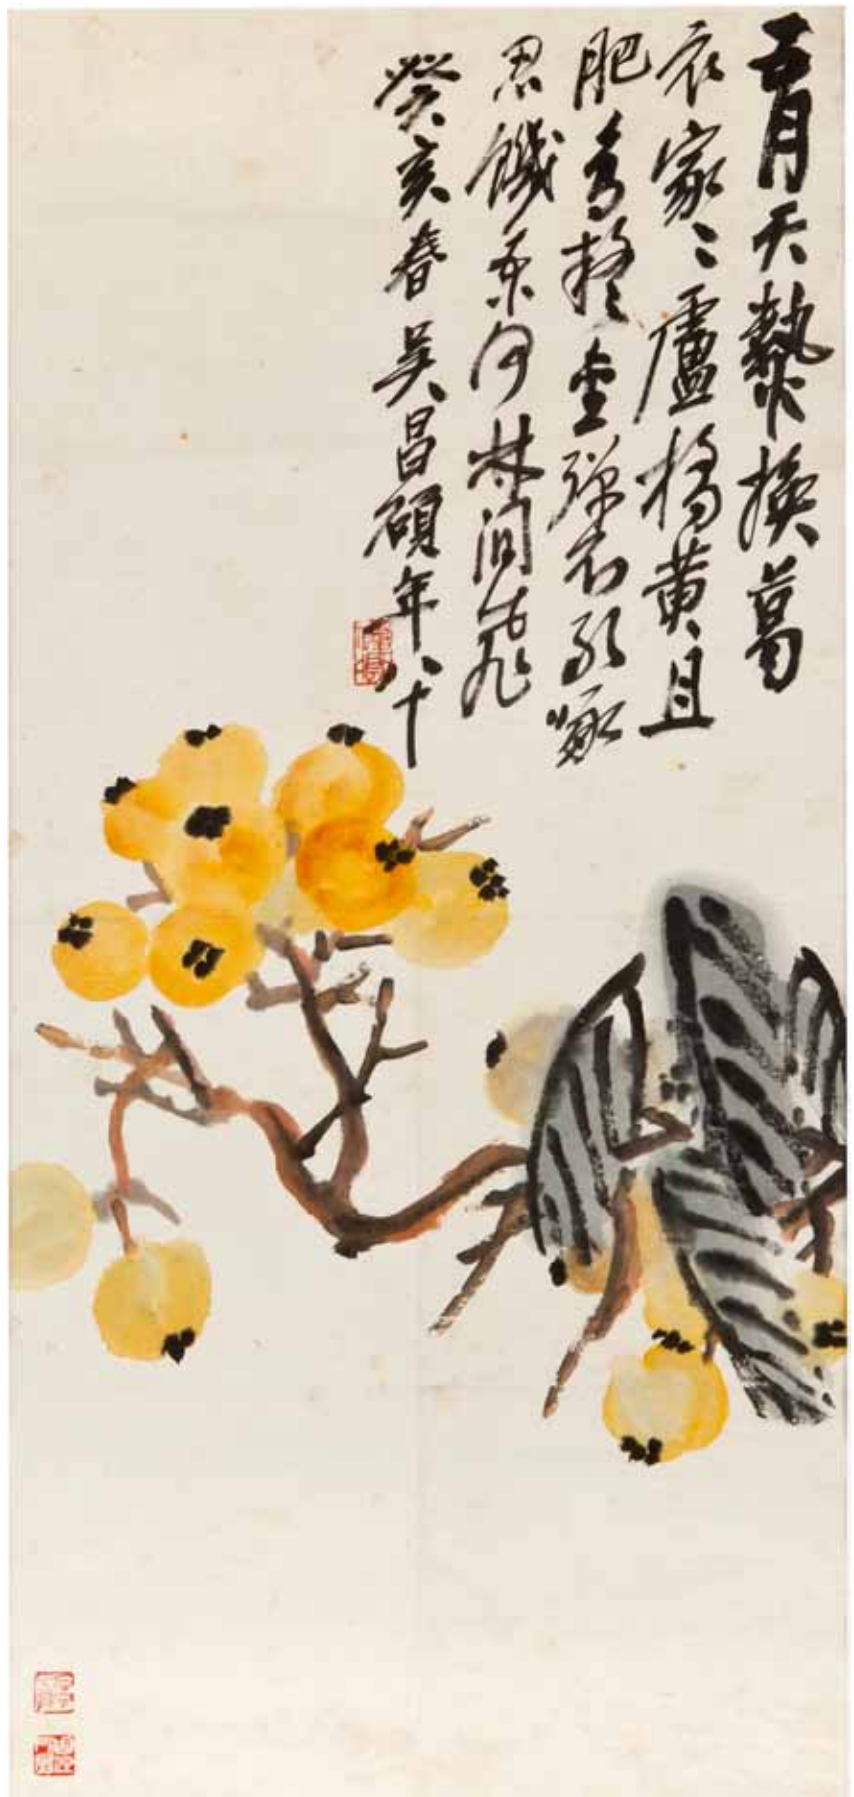 五月天熱換葛
衣家〻盧橘黃且
肥鳥疑金彈不敢啄
忍饑奈何林間飛
癸亥春吳昌碩年八十